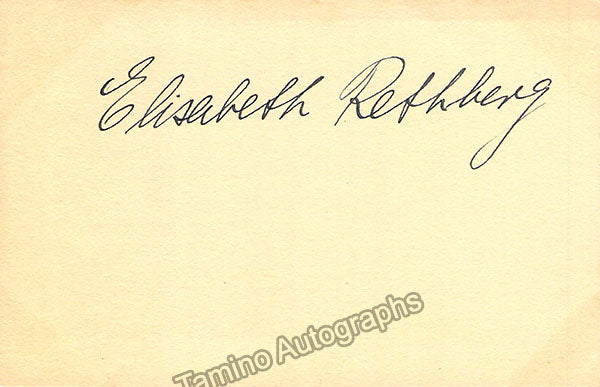 Elisabeth Rethberg
Tamino Autographs